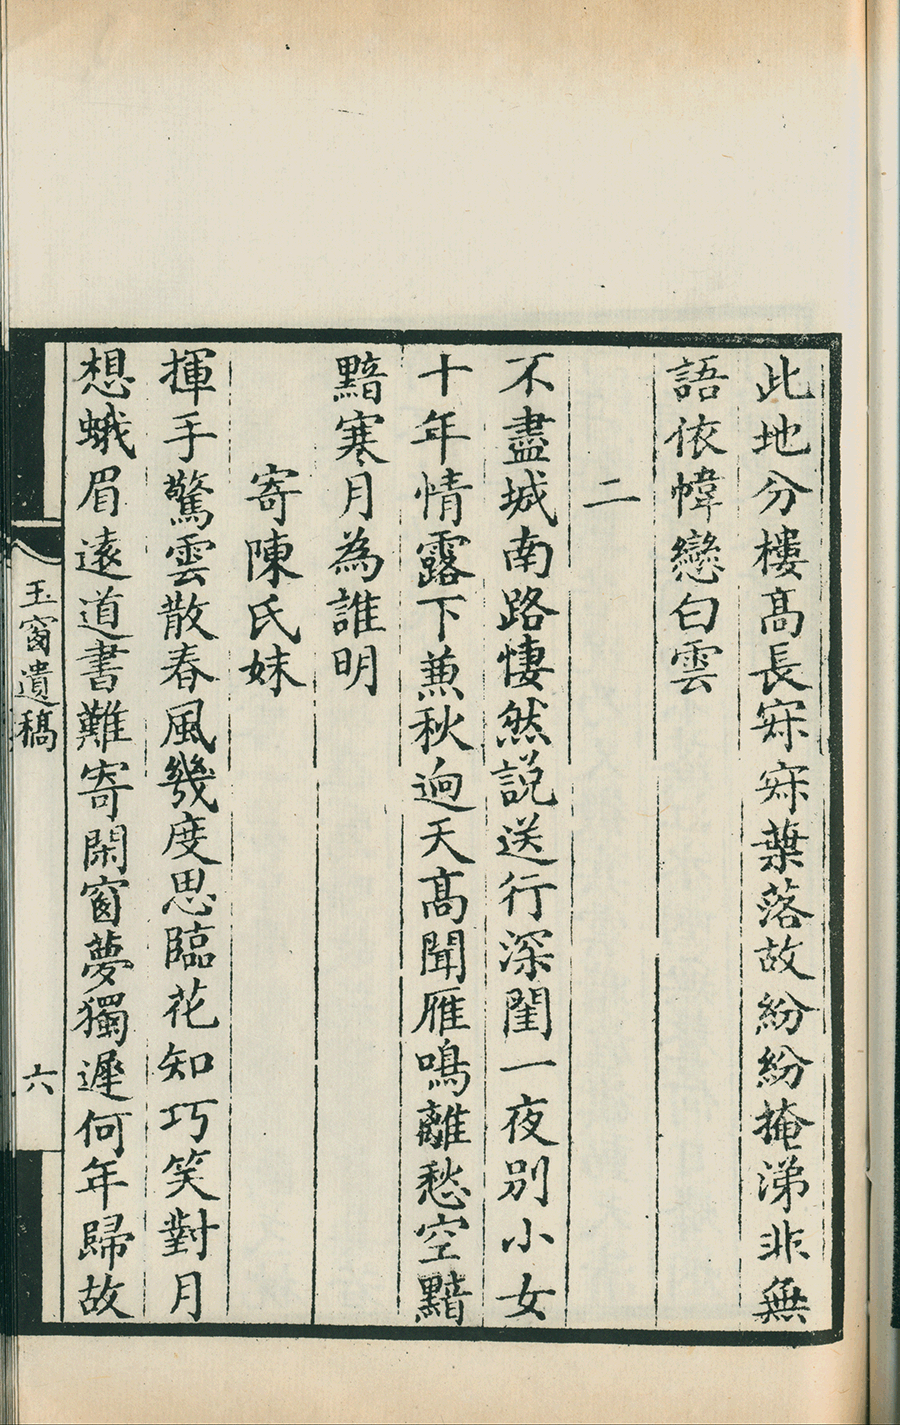 此地分樓髙長寂寂葉落故紛紛掩涕非無
語依幃戀白雲
二
不盡城南路悽然説送行深閨一夜别小女
十年情露下蒹秋逈天髙聞雁鳴離愁空黯
黯寒月為誰明
寄陳氏妹
揮手驚雲散春風幾度思臨花知巧笑對月
想蛾眉遠道書難寄閑窗夢獨遲何年歸故
玉窗遺稿
六